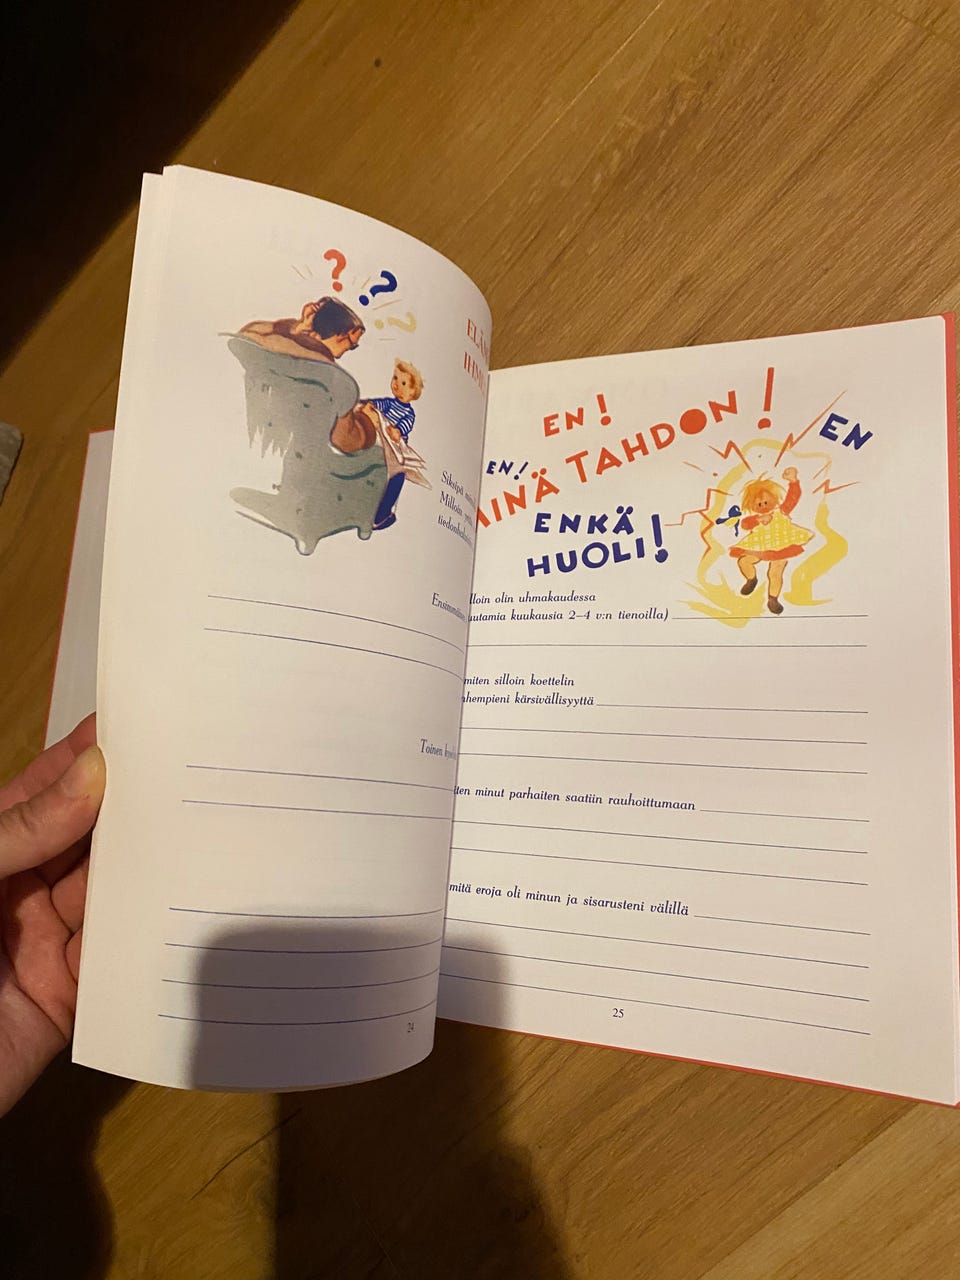 ? ? ?
ELÄM
IHM
Siksipä
Milloin
tiedonhalu
Ensimmäinen
Toinen
24
EN!
EN!
EN
MINÄ TAHDON!
ENKÄ
HUOLI!
lloin olin uhmakaudessa
uutamia kuukausia 2–4 v:n tienoilla)
miten silloin koettelin
nhempieni kärsivällisyyttä
ten minut parhaiten saatiin rauhoittumaan
mitä eroja oli minun ja sisarusteni välillä
25